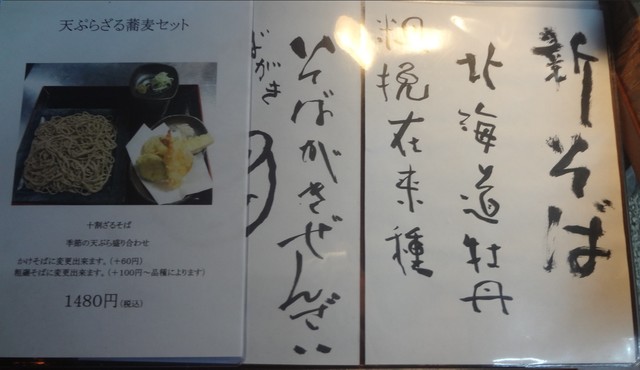 天ぷらざる蕎麦セット
十割ざるそば
季節の天ぷら盛り合わせ
かけそばに変更出来ます。（＋60円）
粗挽そばに変更出来ます。（＋100円～品種によります）
1480円(税込)
新そば
北海道牡丹
粗挽在来種
いそばがきぜんざい
ばがき